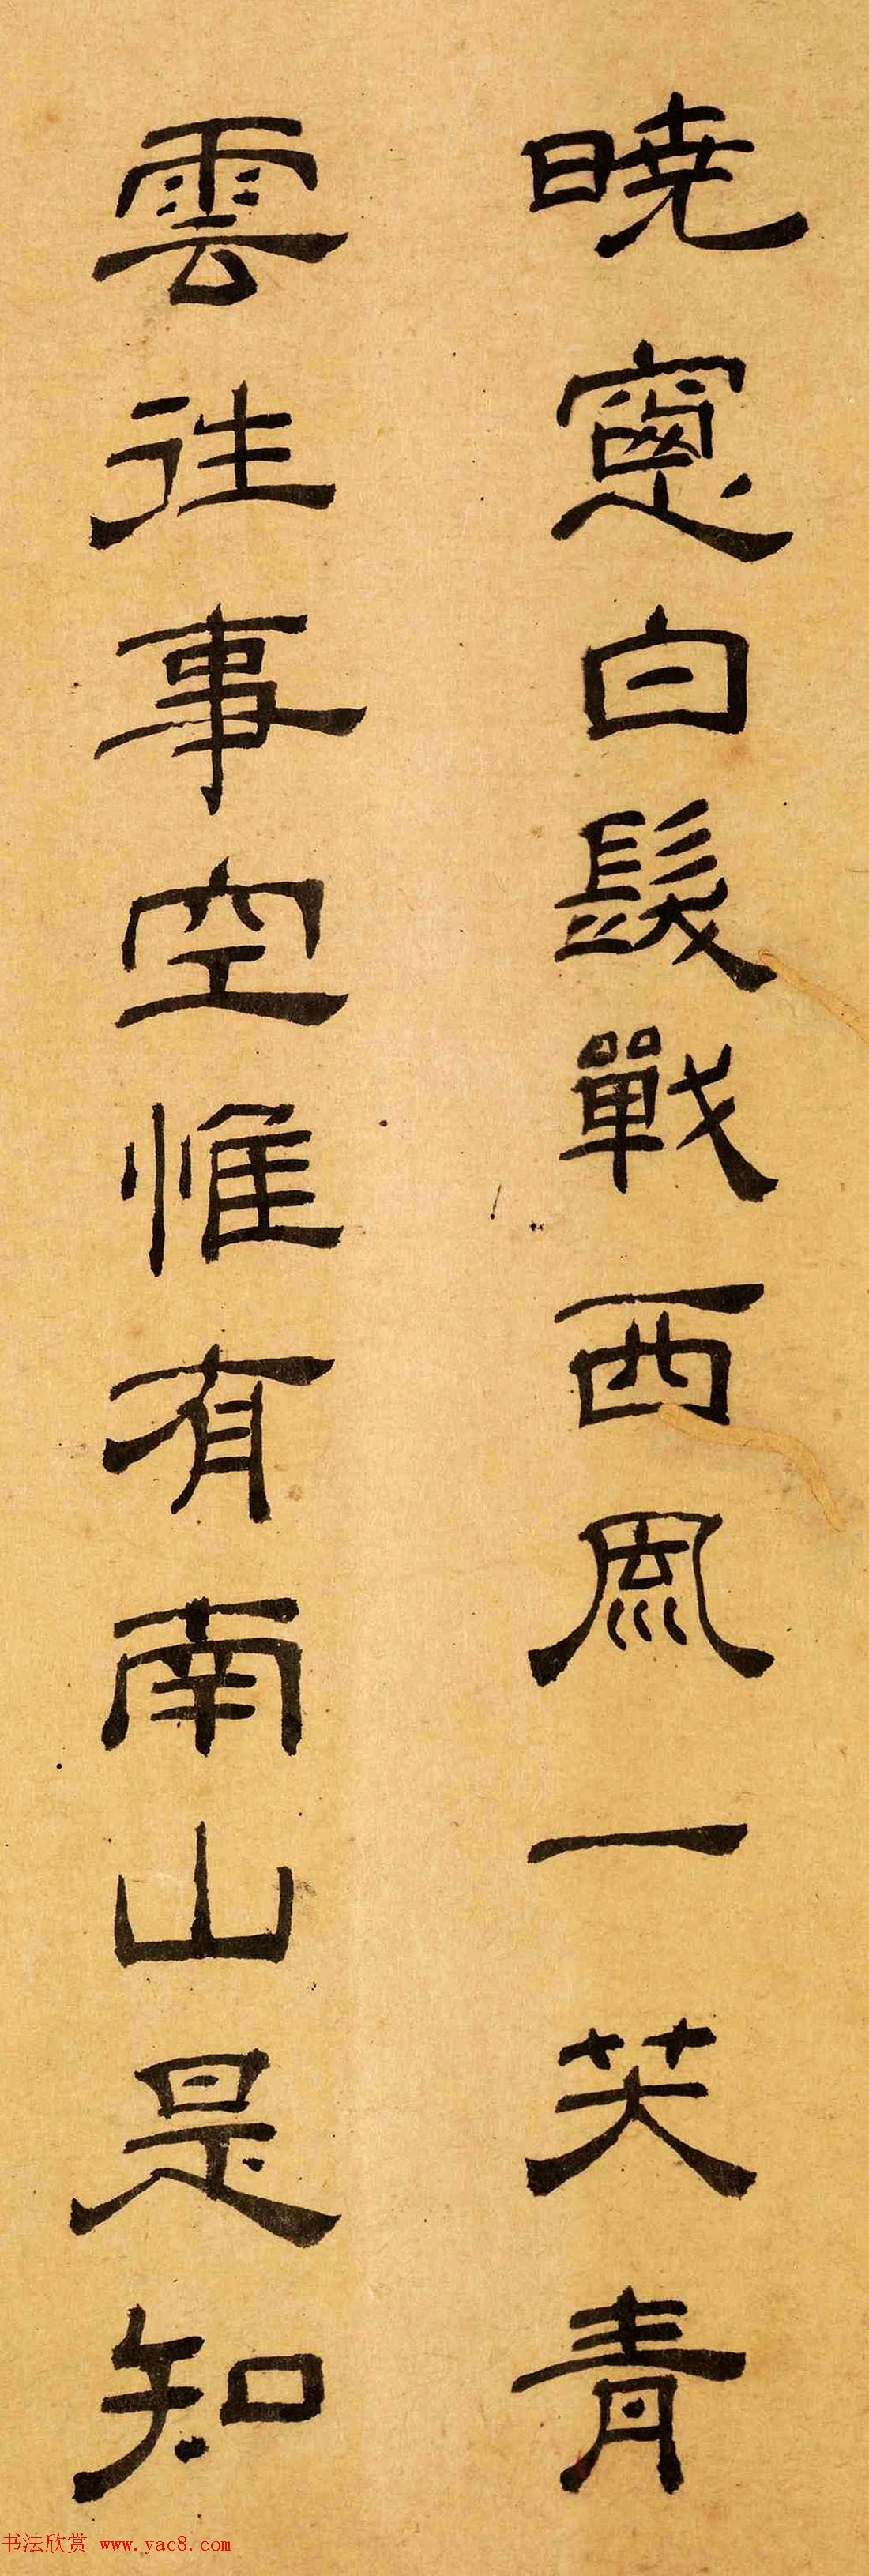 暁窻白髮戰西風一笑青
雲往事空惟有南山是知
书法欣赏 www.yac8.com